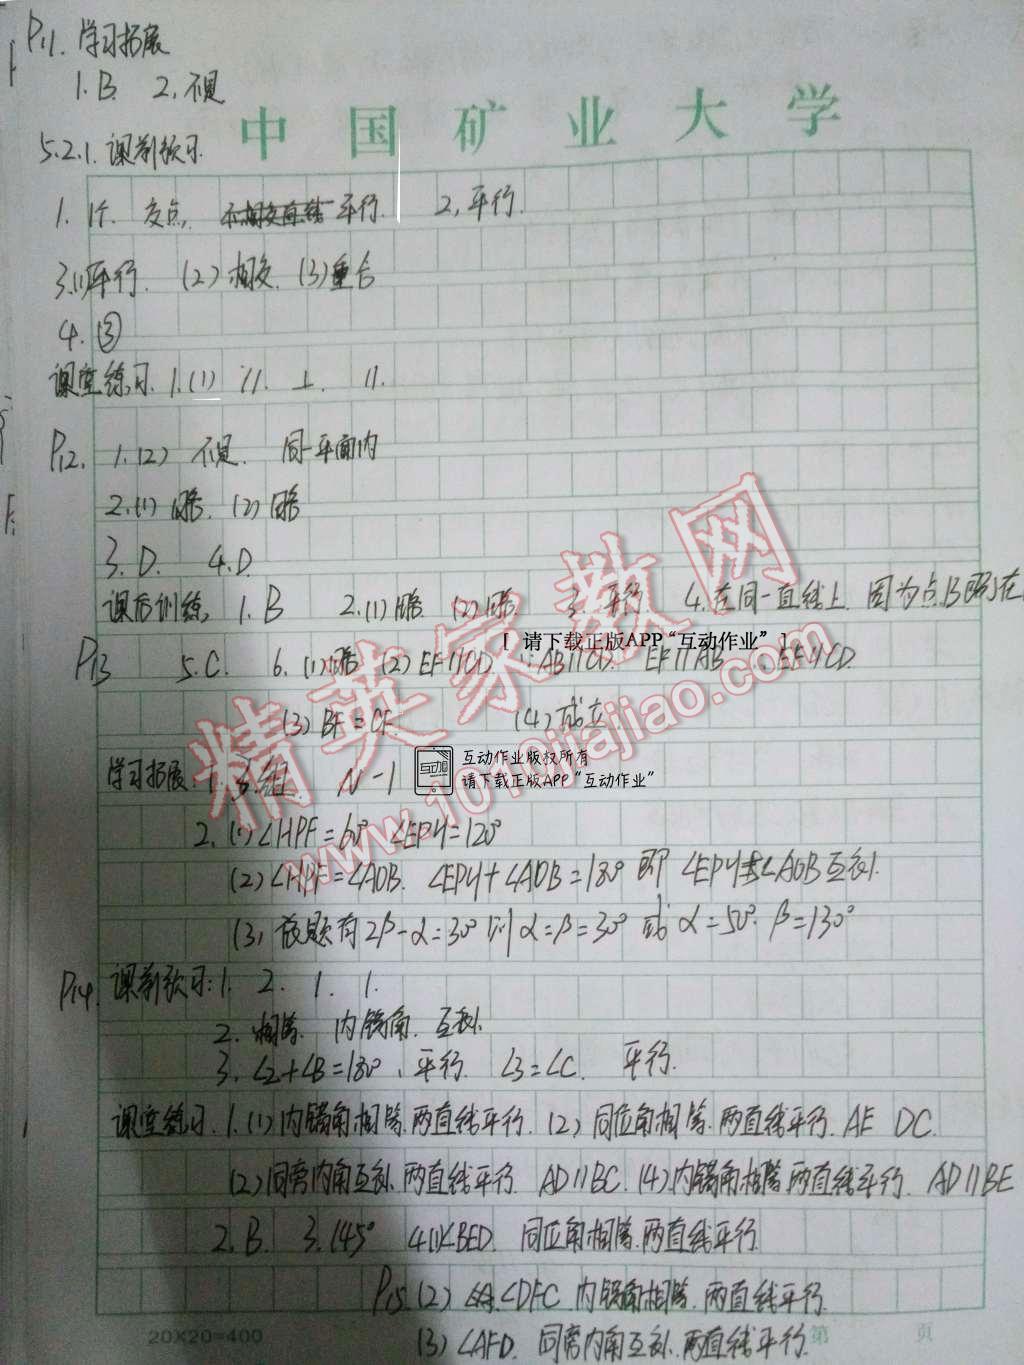 P11. 学习拓展
1. B. 2. 不是
中国矿业大学
5.2.1. 课前预习.
1. 1个. 交点, 平行. 2, 平行.
3.(1)平行. (2) 相交. (3)重合
4. ③
课堂练习. 1.(1) //. ⊥. //.
P12. 1.(2) 不是. 同一平面内
2.(1) 略. (2) 略
3. D. 4. D.
课后训练, 1. B 2.(1) 略 (2) 略 3. 平行. 4. 在同一直线上. 因为点B
[ 请下载正版APP“互动作业” ]
P13 5. C. 6. (1) 略 (2) EF//CD. ∵AB//CD. EF//AB ∴EF//CD.
(3) BF=CF. (4) 成立.
互动作业版权所有
学习拓展. 1. 组. N-1
互动 请下载正版APP“互动作业”
2. (1) ∠HPF=60° ∠EPH=120°
(2) ∠HPF=∠AOB. ∠EPH+∠AOB=180° 即 ∠EPH与∠AOB互补.
(3) 故题有 2β-α=30° 则 α=β=30° 或 α=50°. β=130°
P14. 课前预习: 1. 2. 1. 1.
2. 相等. 内错角. 互补.
3. ∠2+∠B=180°. 平行. ∠3=∠C. 平行.
课堂练习. 1.(1) 内错角相等. 两直线平行. (2) 同位角相等. 两直线平行. AE DC.
(2) 同旁内角互补. 两直线平行. AD//BC. (4) 内错角相等. 两直线平行. AD//BE
2. B. 3. 145° 4.(1)∠BED. 同位角相等. 两直线平行.
P15. (2) ∠DFC. 内错角相等. 两直线平行.
20X20=400 (3) ∠AFD. 同旁内角互补. 两直线平行. 第 页
精英家教网
www.1010jiajiao.com